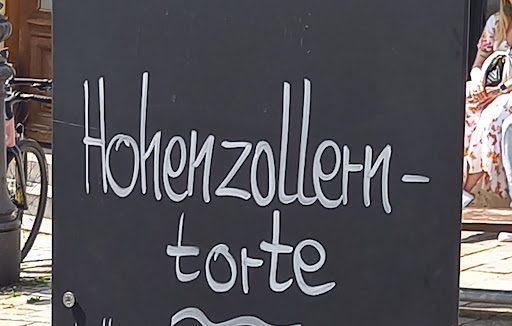 Hohenzollern-
torte